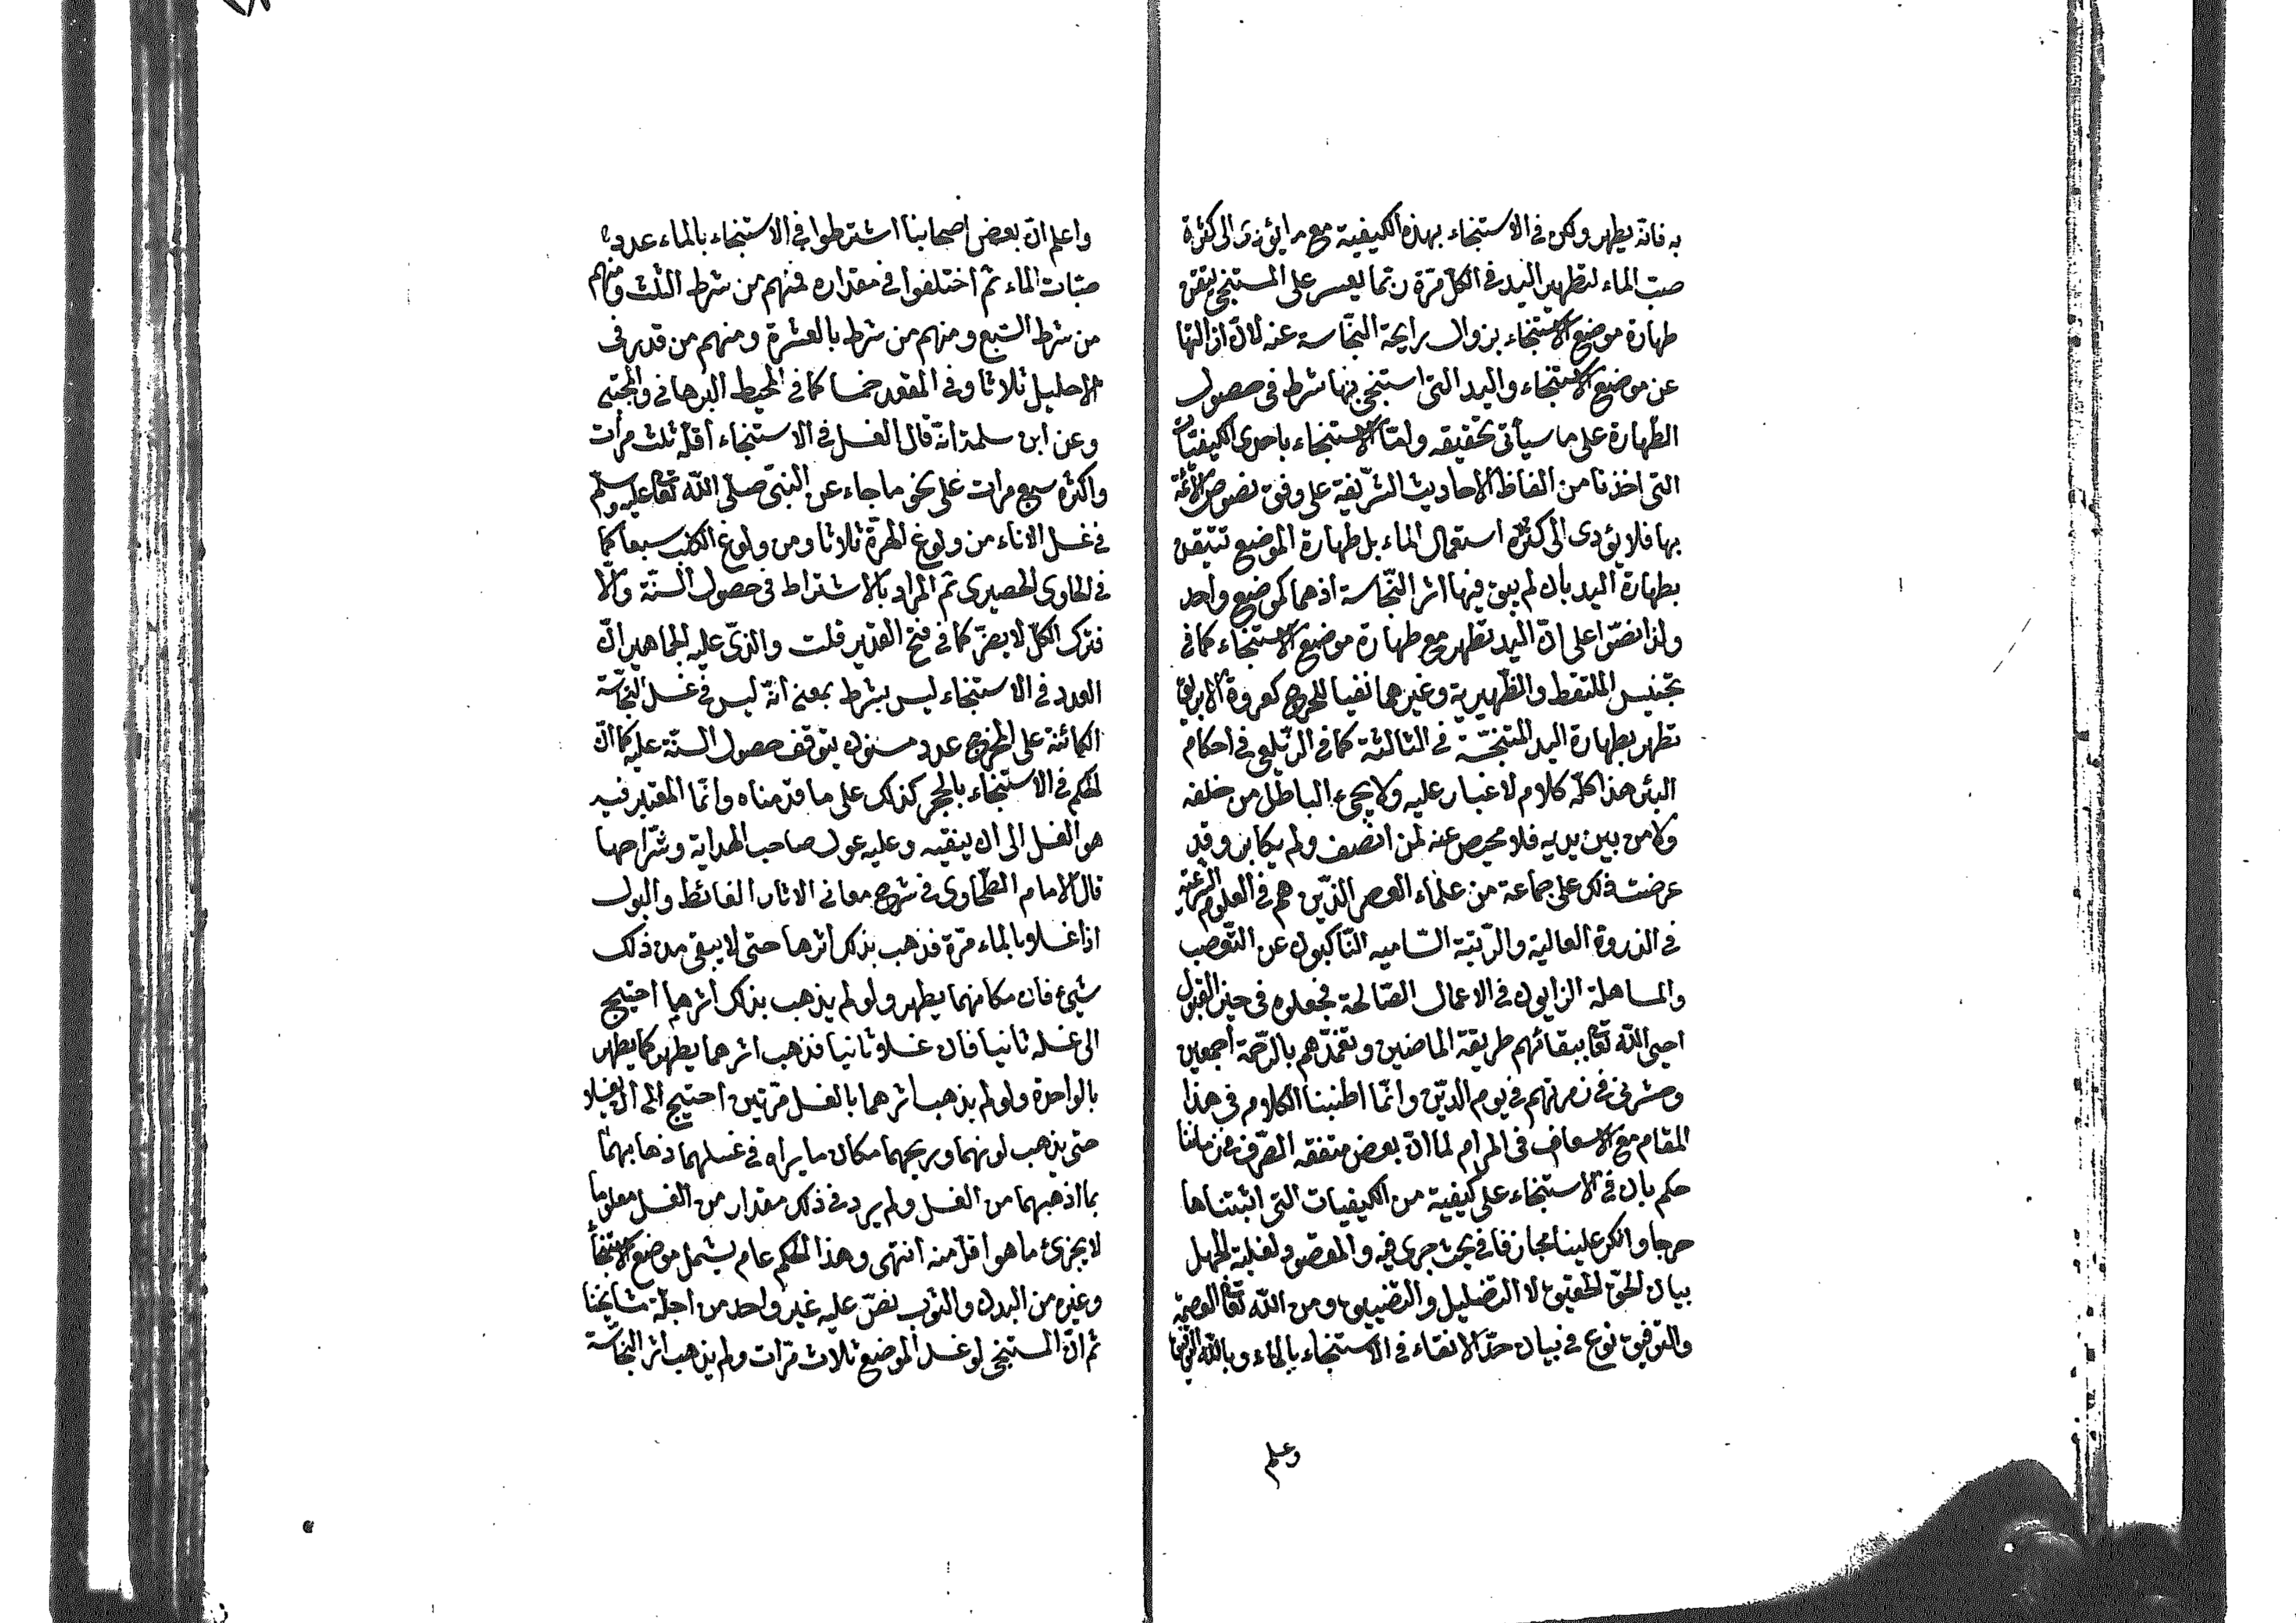 به فانّه يطهر ولكن فى الاستنجاء بهذه الكيفية مع ما يؤدى الى كثرة
صبّ الماء لتطهير اليد فى الكلّ مرّة ربّما يعسر على المستنجى تيقن
طهارة موضع الاستنجاء بزوال رايحة النّجاسة عنه لانّ ازالتها
عن موضع الاستنجاء واليد التى استنجى بها شرط فى حصول
الطّهارة على ما سيأتى تحقيقه وامّا الاستنجاء باحدى الكيفيّات
التى اخذنا من الفاظ الاحاديث الشّريفة على وفق نصوص الائمّة
بها فلا يؤدى الى كثرة استعمال الماء بل طهارة الموضع تتيقن
بطهارة اليد بان لم يبق فيها اثر النّجاسة اذ هما كموضع واحد
ولذا نصّوا على انّ اليد تطهر مع طهارة موضع الاستنجاء كما فى
تجنيس الملتقط والظّهيرية وغيرهما نفيا للحرج كعروة الابريق
تطهر بطهارة اليد المتنجّسة فى الثالثة كما فى الزّيلعى فى احكام
البئر هذا كلّه كلام لا غبار عليه ولا يجىء الباطل من خلفه
ولا من بين يديه فلا محيص عنه لمن انصف ولم يكابر وقد
عرضت ذلك على جماعة من علماء العصر الذّين هم فى العلوم الشّرعيّة
فى الذروة العالية والرّتبة السّاميه النّاكبون عن التّعصب
والمساهلة الزايدون فى الاعمال الصّالحة فجعلوه فى حيز القبول
احيى اللّه تعالى ببقائهم طريقة الماضين وتغمّدهم بالرّحمة اجمعين
وحشرنى فى زمرتهم فى يوم الدّين وانّما اطنبنا الكلام فى هذا
المقام مع الاسعاف فى المرام لما انّ بعض متفقه الصّرف فى زماننا
حكم بان فى الاستنجاء على كيفية من الكيفيات التى اثبتناها
حرجا وانكر علينا مجازفا فى بحث جرى فيه والمقصود لغلبة الجهل
بيان الحقّ الحقيق لا التضليل والتضييق ومن اللّه تعالى العصمة
والتوفيق نوع فى بيان حدّ الانقاء فى الاستنجاء بالماء وباللّه
وعلم
واعلم انّ بعض اصحابنا اشترطوا فى الاستنجاء بالماء عدد
صبّات الماء ثم اختلفوا فى مقداره فمنهم من شرط الثلث ومنهم
من شرط السّبع ومنهم من شرط بالعشرة ومنهم من قدر فى
الاحليل ثلاثا وفى المقعد خمسا كما فى المحيط البرهانى والمجتبى
وعن ابن سلمة انّه قال الغسل فى الاستنجاء اقلّه ثلث مرات
واكثره سبع مرات على نحو ما جاء عن النبىّ صلّى اللّه تعالى عليه وسلّم
فى غسل الاناء من ولوغ الهرّة ثلاثا ومن ولوغ الكلب سبعا كما
فى الحاوى الحصيرى ثم المراد بالاشتراط فى حصول السنّة والّا
فترك الكلّ لا يضرّ كما فى فتح القدير قلت والذى عليه الجماهير انّ
العدد فى الاستنجاء ليس بشرط بمعنى انّه ليس فى غسل النجاسّة
الكائنة على المخرج عدد مسنون يتوقف حصول السنّة عليه كما انّ
الحكم فى الاستنجاء بالحجر كذلك على ما قدّمناه وانّما المعتبر فيه
هو الغسل الى ان ينقيه وعليه عول صاحب الهداية وشرّاحها
قال الامام الطّحاوى فى شرح معانى الاثار الغائط والبول
اذا غسلا بالماء مرّة فذهب بذلك اثرها حتى لا يبقى من ذلك
شىء فان مكانهما يطهر ولو لم يذهب بذلك اثرهما احتيج
الى غسله ثانيا فان غسلا ثانيا فذهب اثرهما يطهر كما يطهر
بالواحدة ولو لم يذهب اثرهما بالغسل مرّتين احتيج الى ان يغسلا
حتى يذهب لونهما وريحهما مكان ما يراد فى غسلهما ذهابهما
بما اذهبهما من الغسل ولم يرد فى ذلك مقدار من الغسل معلوما
لا يجزئ ما هو اقلّ منه انتهى وهذا الحكم عام يشمل موضع الاستنجاء
وغيره من البدن والثوب نصّ عليه غير واحد من اجلّة مشايخنا
ثم انّ المستنجى لو غسل الموضع ثلاث مرّات ولم يذهب اثر النجاسّة